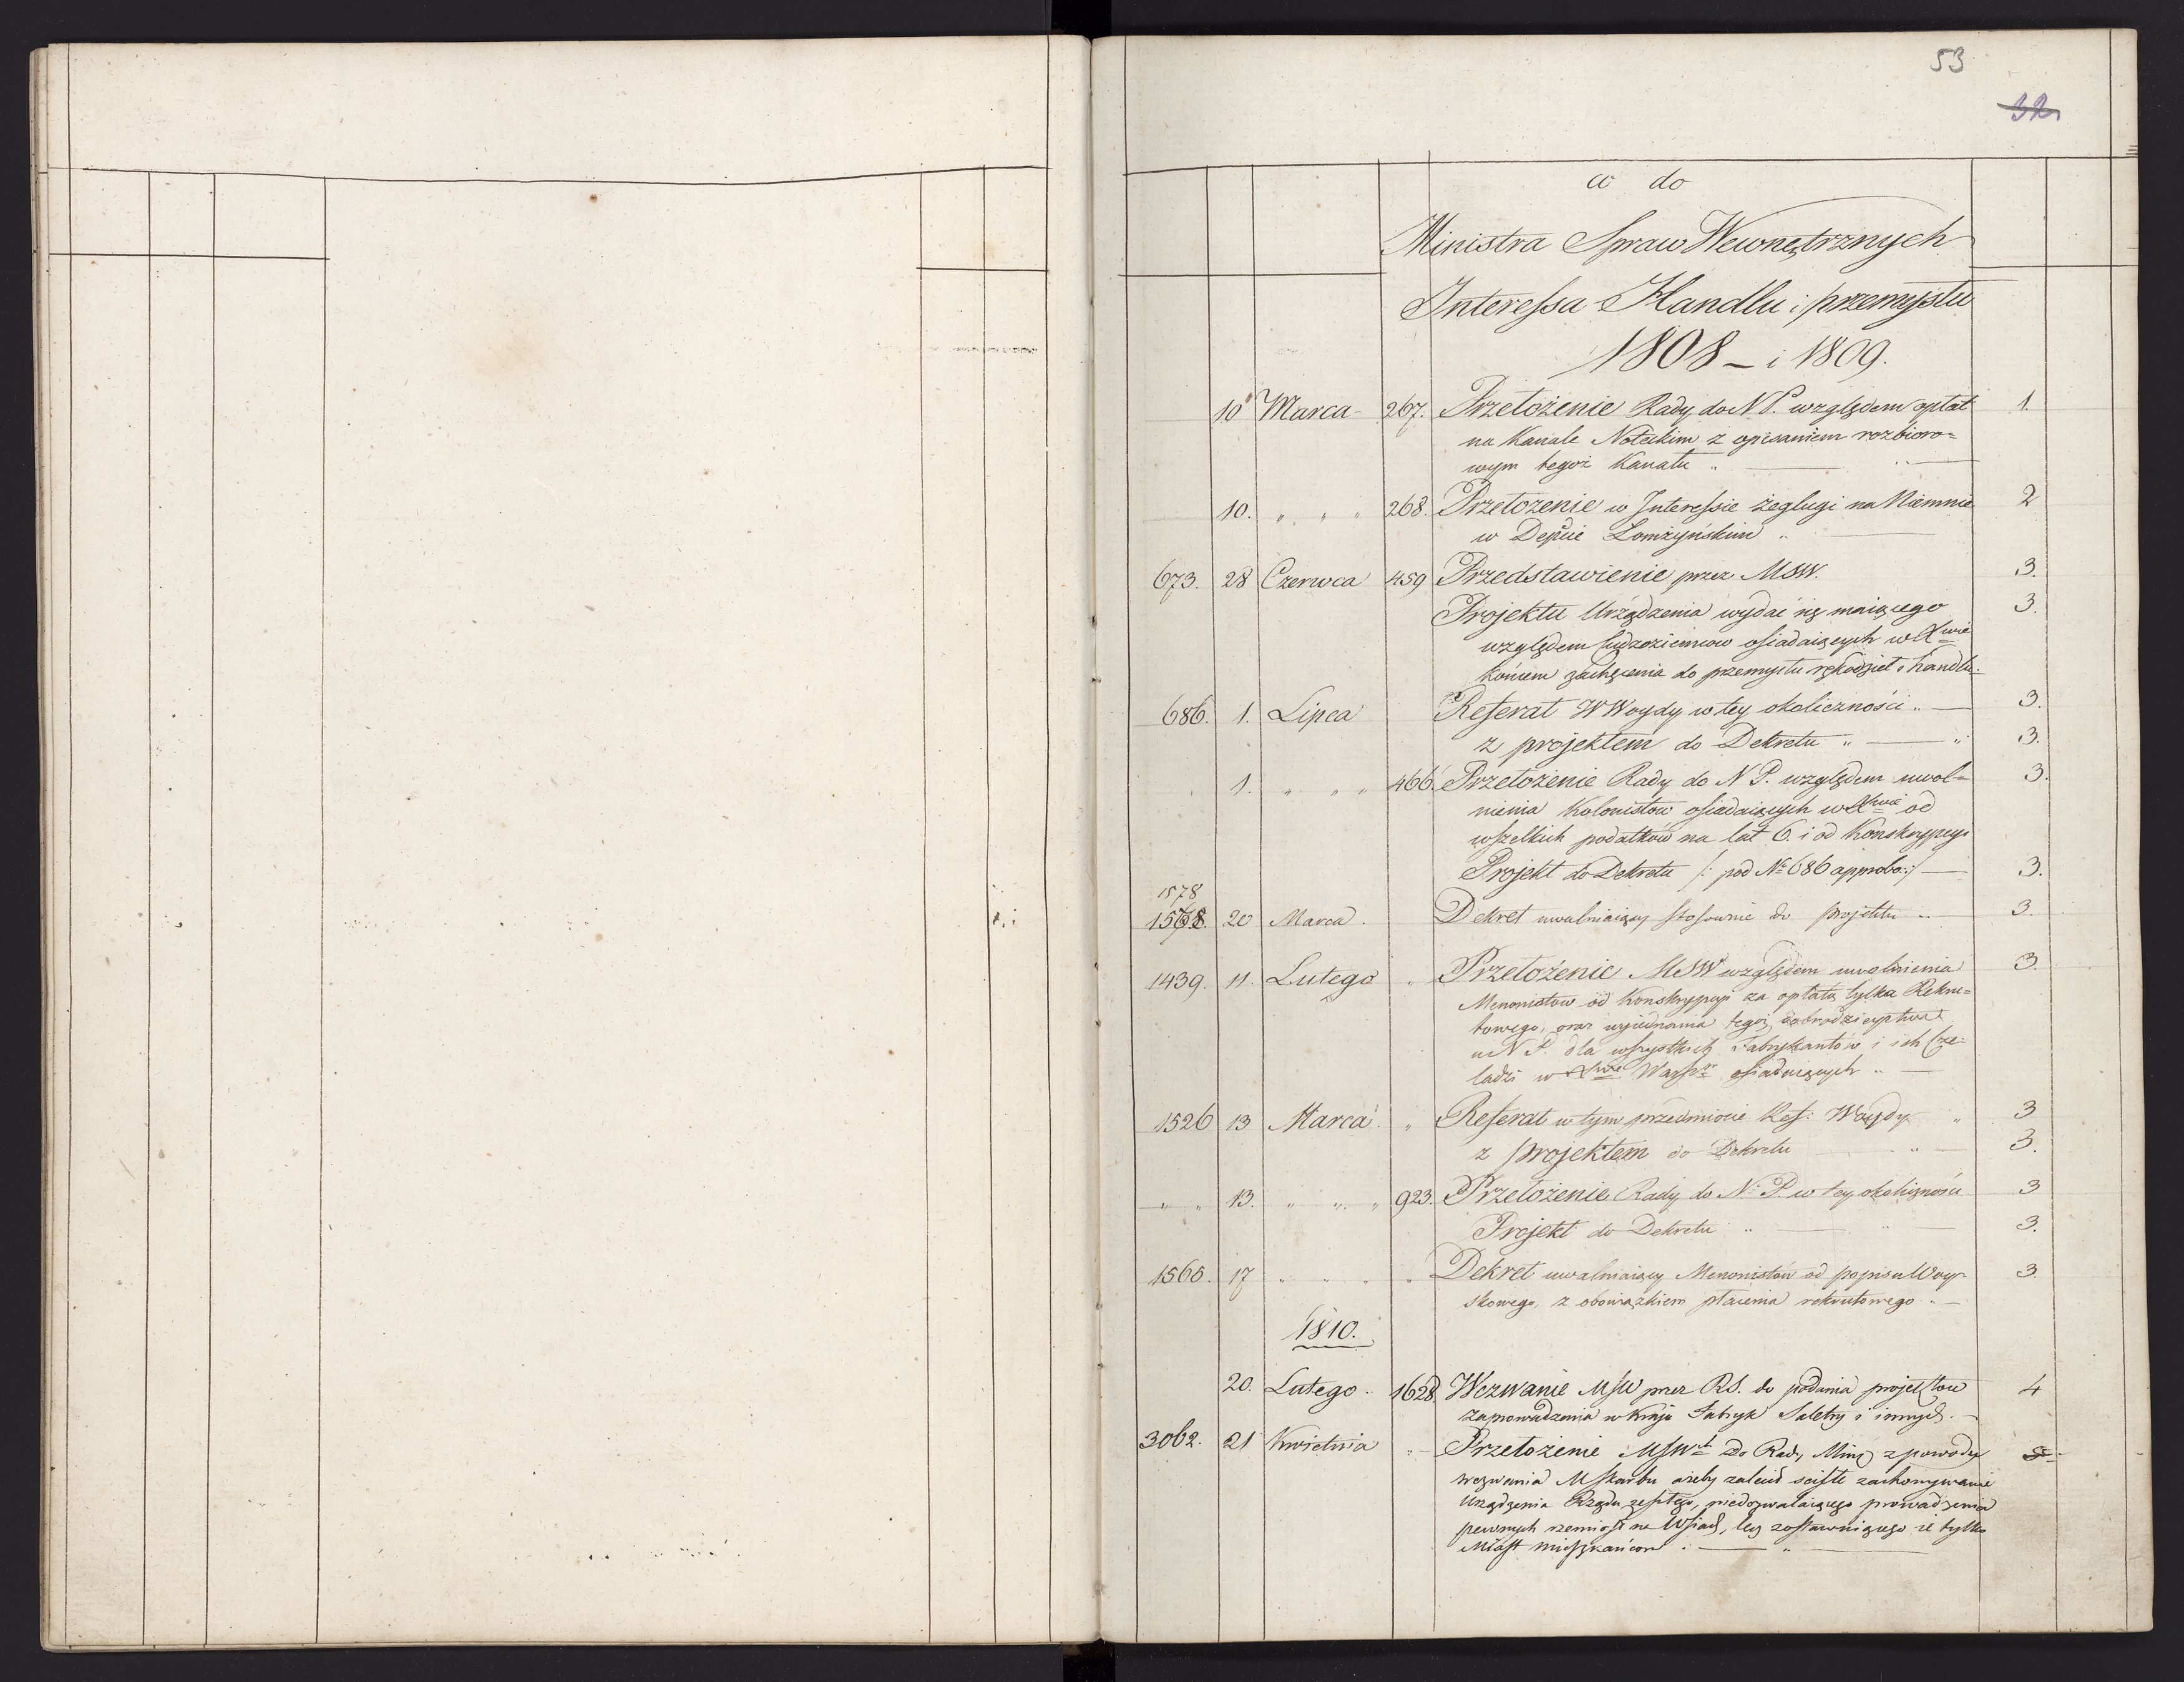 53
32
a do
Ministra Spraw Wewnętrznych
Interessa Handlu i przemysłu
1808 – i 1809.
10 Marca 267. Przełożenie Rady do N P. względem opłat 1.
na Kanale Noteckim z opisaniem rozbioro=
wym tegoż Kanału „
10. „ „ „ 268. Przełożenie w Interessie żeglugi na Niemnie 2
w Depcie Łomżyńskim „
673. 28 Czerwca 459 Przedstawienie przez MSW. 3.
Projektu Urządzenia wydać się maiącego 3.
względem Cudzoziemcow osiadaiących w Xwie
końcem zachęcenia do przemysłu rękodzieł i handlu
686. 1. Lipca Referat W Woydy w tey okoliczności „ 3.
z projektem do Dekretu „ „ 3.
1. „ „ „ 466. Przełożenie Rady do N P. względem uwol= 3.
nienia Kolonistow osiadaiących w Xtwie od
wszelkich podatków na lat 6. i od Konskrypcyi
Projekt do Dekretu /: pod No 686 approbo:/ 3.
1578
1568. 20 Marca. Dekret uwalniaiący stosownie do projektu „ 3.
1439. 11. Lutego „ Przełożenie MSW względem uwolnienia 3.
Menonistow od Konskrypcyi za opłatą tylko Rekru=
towego, oraz wyiednania tegoż dobrodzieystwa
u N P. dla wszystkich Fabrykantów i ich Cze=
ladzi w Xwie Warso osiadaiących „
1526 13 Marca. „ Referat w tym przedmiocie Ref: Woydy „ 3
z projektem do Dekretu „ 3.
„ „ 13. „ „ „ 923. Przełożenie Rady do N. P. w tey okoliczności 3
Projekt do Dekretu „ „ 3.
1565. 17 „ „ „ „ Dekret uwalniaiący Menonistow od popisu Woy= 3.
skowego, z obowiązkiem płacenia rekrutowego „
1810.
20. Lutego. 1628. Wezwanie MSW przez RS. do podania projektow 4
zaprowadzenia w Kraju Fabryk Saletry i innych.
3062. 21 Kwietnia „ Przełożenie MSW do Rady Min z powodu 5
wezwania M Skarbu ażeby zalecił scisłe zachowywanie
Urządzenia Rządu zeszłego, niedozwalaiącego prowadzenia
pewnych rzemiosł na Wsiach, lecz zostawuiącego ie tylko
Miast mieszkańcom . „